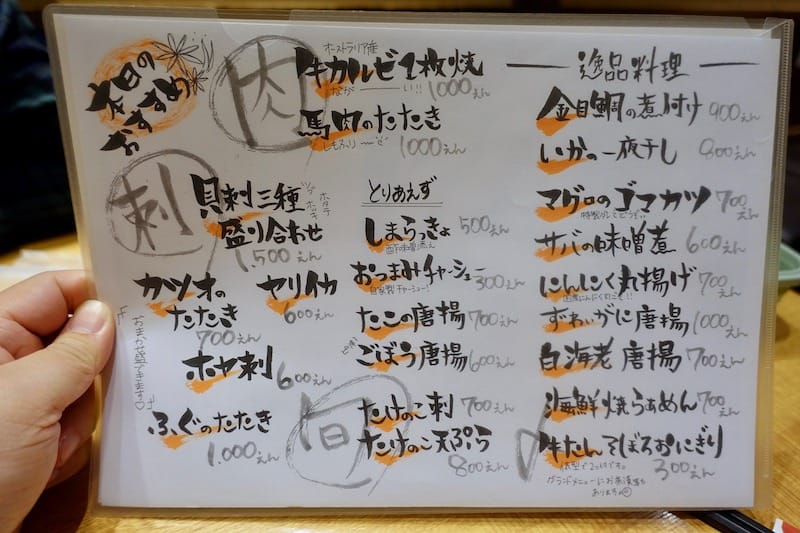 本日の
おすすめ
肉
オーストラリア産
牛カルビ1枚焼
ながーーい!! 1000えん
馬肉のたたき
しもふり 1000えん
刺
貝刺三種
ツブ
ホッキ
ホタテ
盛り合わせ
1,500えん
カツオの
たたき
700えん
ヤリイカ
600えん
ホヤ刺 600えん
ふぐのたたき
1,000えん
おまかせ盛できます♡
とりあえず
しまらっきょ 500えん
おつまみチャーシュー 300えん
自家製チャーシュー!
たこの唐揚 700えん
ごぼう唐揚 600えん
旬
たけのこ刺 700えん
たけのこ天ぷら
800えん
逸品料理
金目鯛の煮付け 900えん
いかの一夜干し 800えん
マグロのゴマカツ 700えん
サバの味噌煮 600えん
にんにく丸揚げ 700えん
ずわいがに唐揚 1000えん
白海老唐揚 700えん
海鮮焼らぁめん 700えん
牛たんそぼろおにぎり
300えん
俵型で2つです。
グランドメニューにお茶漬も
あります